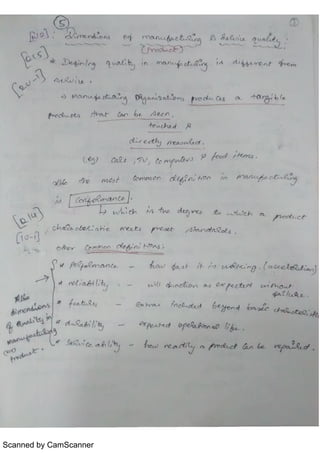 5
[Q12] : Dimensions of manufacturing & Service quality :
(Product)
[Q15]
* Defining quality in manufacturing is different from
service.
[Q4-1]
→ Manufacturing Organisations produces a tangible
products that can be seen,
touched &
directly measured.
(eg) Cars, TV, Computers & food items.
The most common definition in manufacturing
is conformance.
↳ which is the degree to which a product
[Q14]
characteristic meets preset standards.
[10-1]
Other Common definitions:
* Performance - how fast it is working (acceleration)
* reliability - will function as expected without
failure.
* features - extras included beyond basic characteristics
* durability - expected operational life.
* Service ability - how readily a product can be repaired.
→
Also
dimensions
of Quality in
manufacturing
(or)
Product.
Scanned by CamScanner